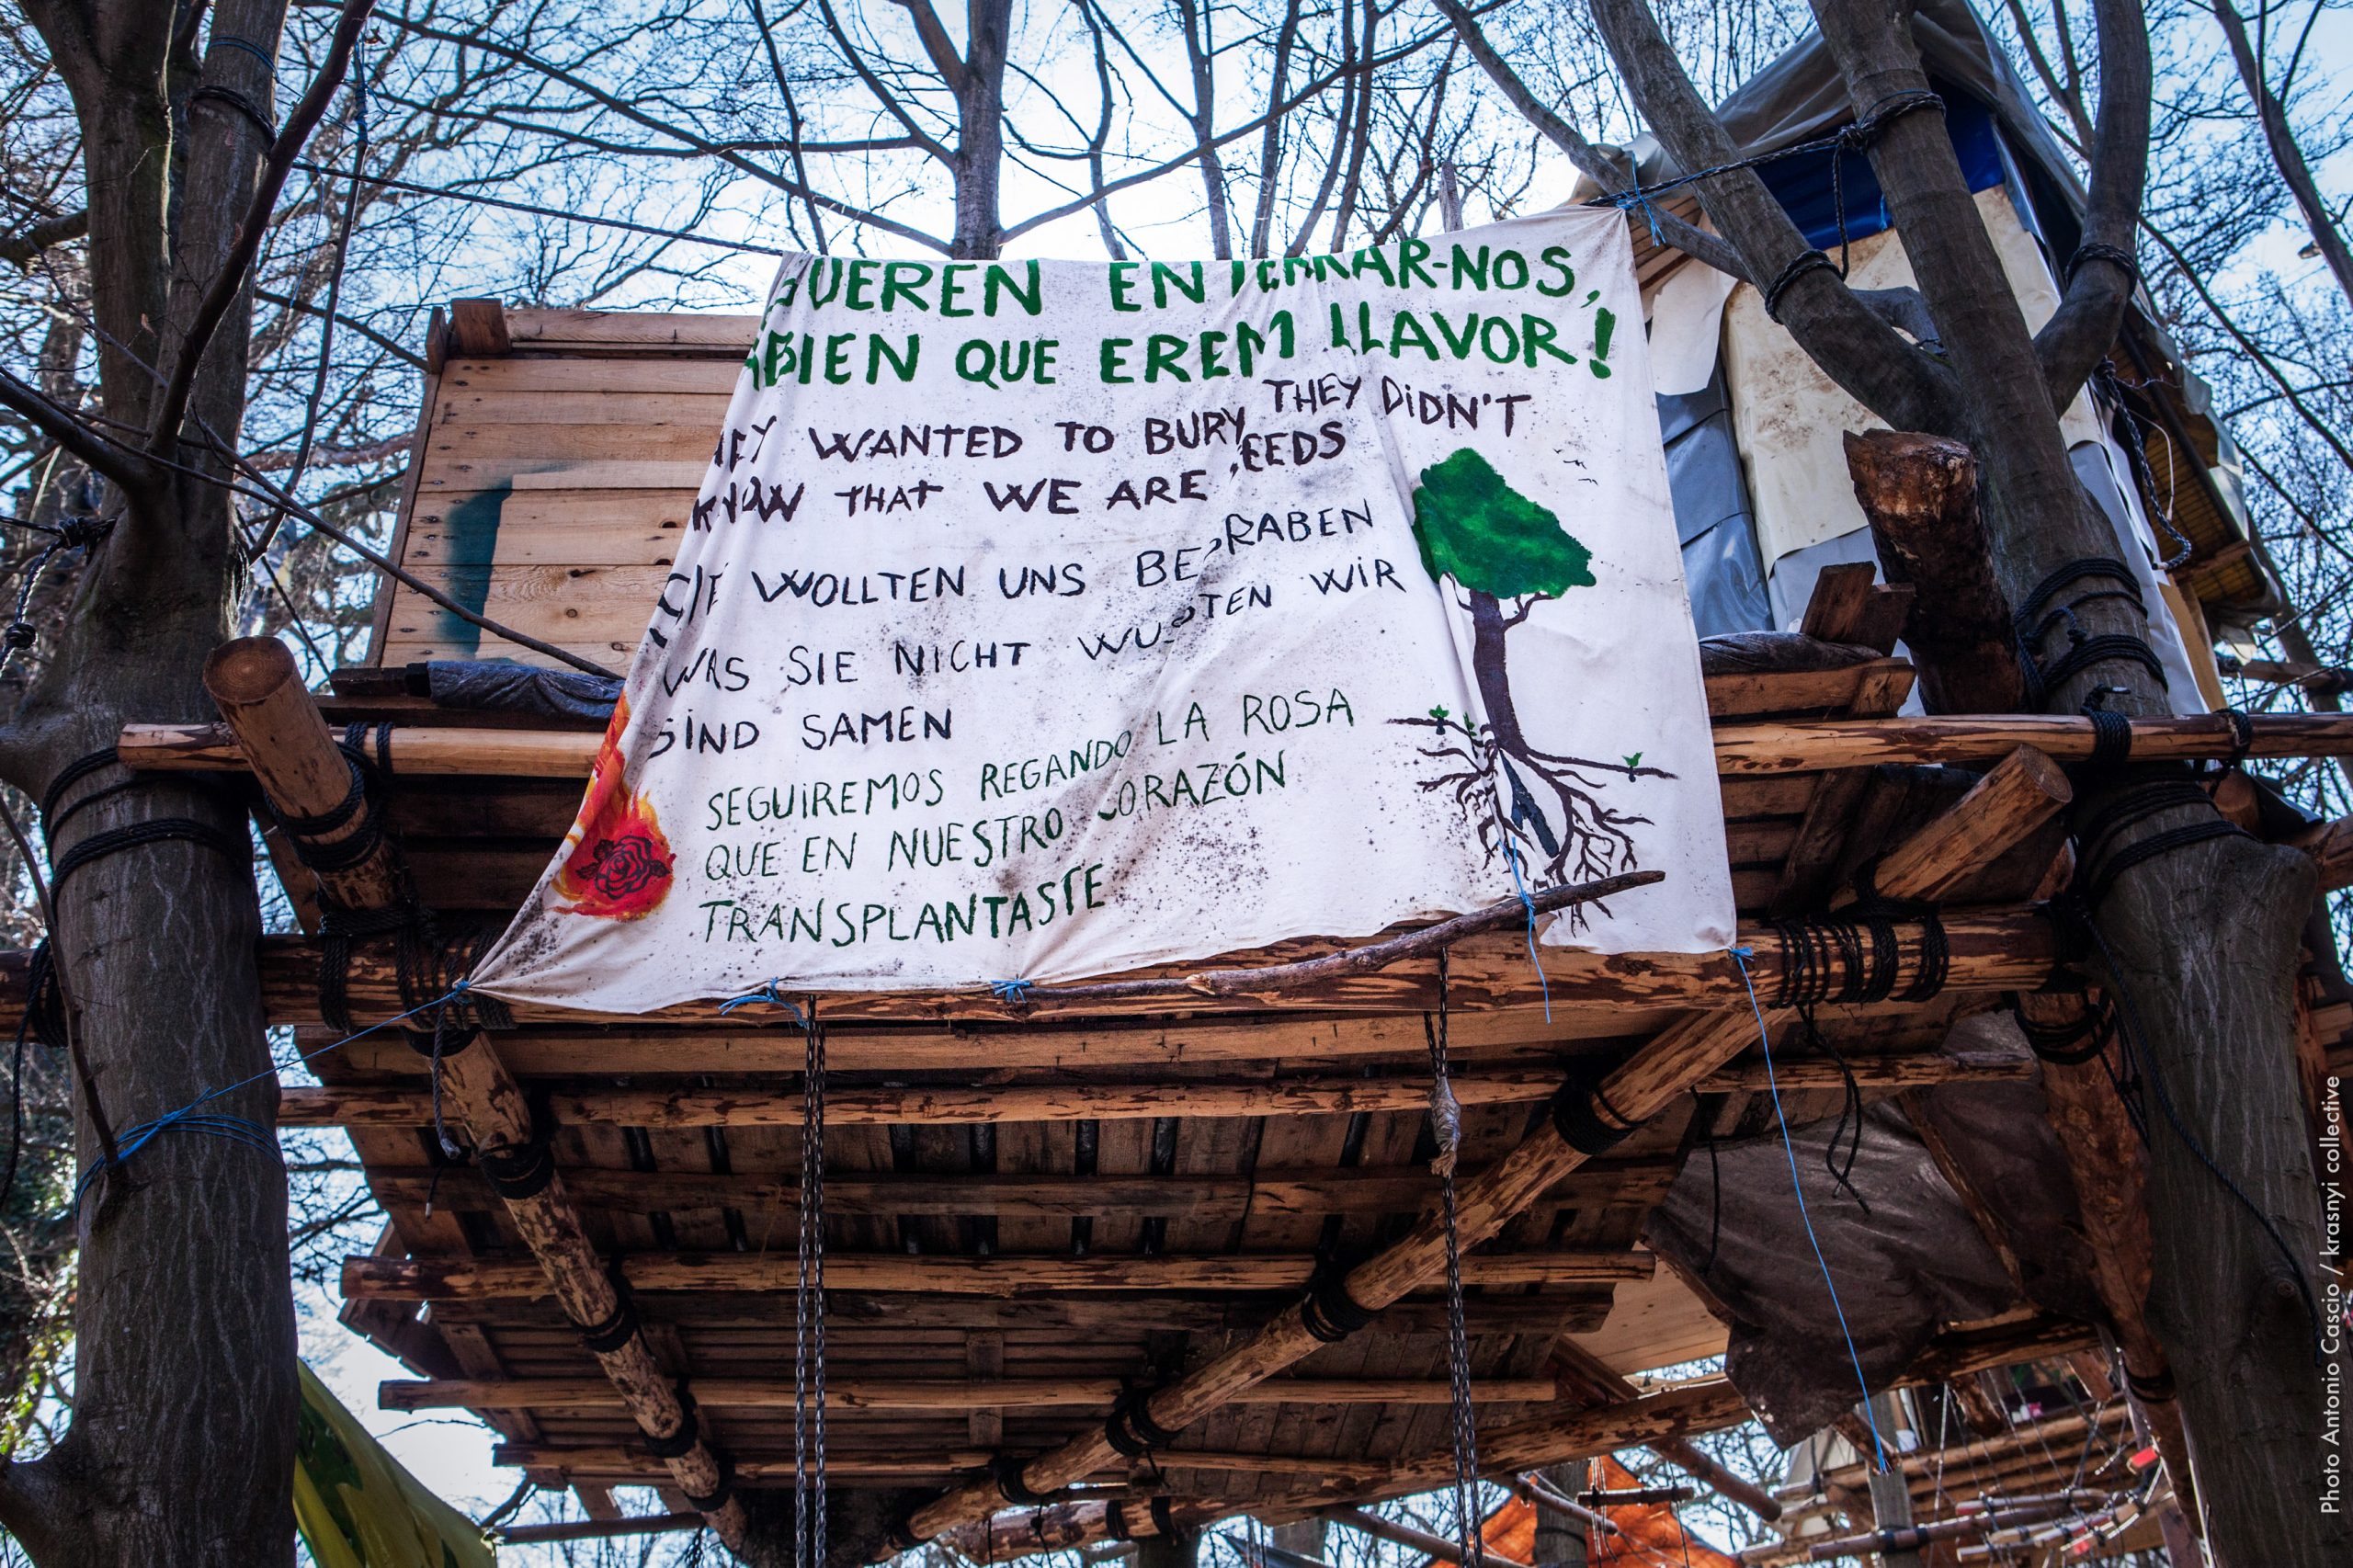 GUEREN ENTERRAR-NOS,
ABIEN QUE EREM LLAVOR!
THEY WANTED TO BURY THEY DIDN'T
KNOW THAT WE ARE SEEDS
SIE WOLLTEN UNS BEGRABEN
WAS SIE NICHT WUSTEN WIR
SIND SAMEN
SEGUIREMOS REGANDO LA ROSA
QUE EN NUESTRO CORAZÓN
TRANSPLANTASTE
Photo Antonio Cascio / krasnyi collective